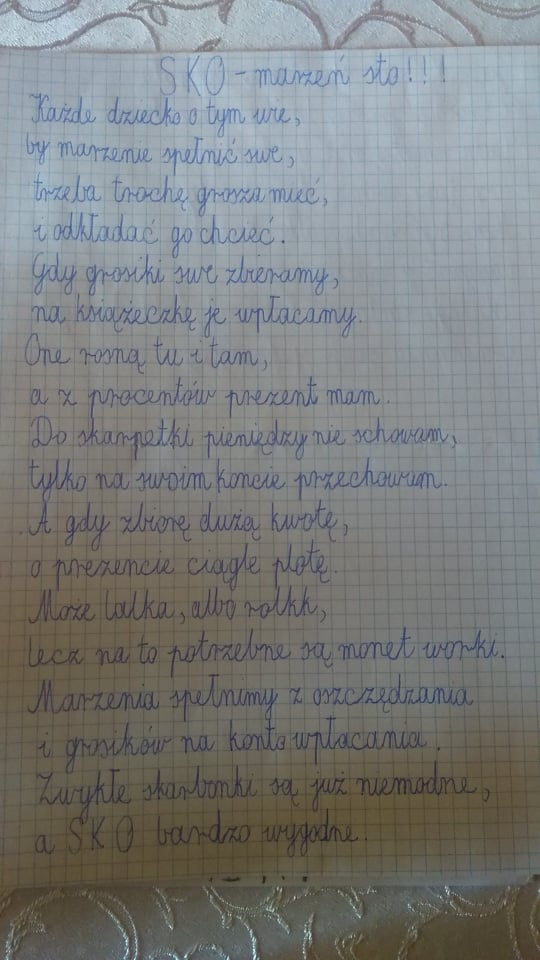 SKO - marzeń sto!!!
Każde dziecko o tym wie,
by marzenie spełnić swe,
trzeba trochę grosza mieć,
i odkładać go chcieć.
Gdy grosiki swe zbieramy,
na książeczkę je wpłacamy.
One rosną tu i tam,
a z procentów prezent mam.
Do skarpetki pieniędzy nie schowam,
tylko na swoim koncie przechowam.
A gdy zbiorę dużą kwotę,
o prezencie ciągle plotę.
Może lalka, albo rolkk,
lecz na to potrzebne są monet worki.
Marzenia spełnimy z oszczędzania
i grosików na konto wpłacania.
Zwykłe skarbonki są już niemodne,
a SKO bardzo wygodne.